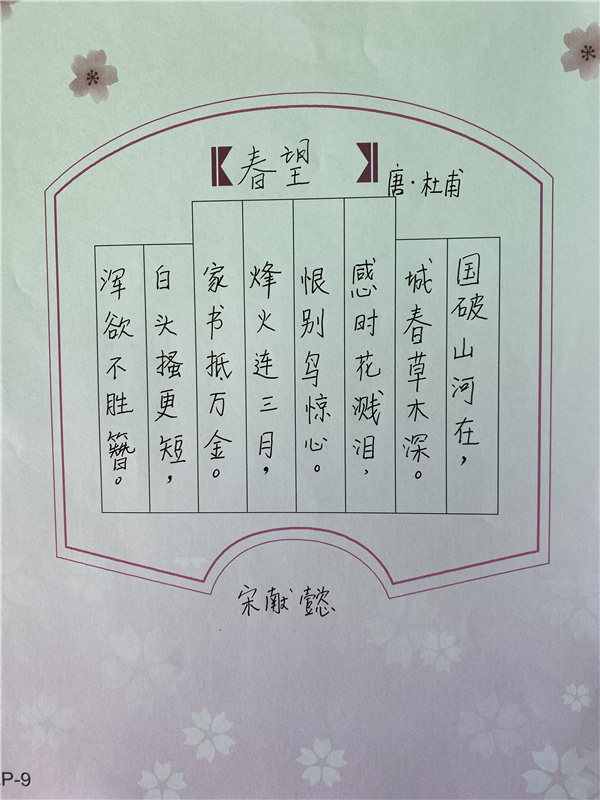 【春望】
唐·杜甫
国破山河在，
城春草木深。
感时花溅泪，
恨别鸟惊心。
烽火连三月，
家书抵万金。
白头搔更短，
浑欲不胜簪。
宋献懿
P-9